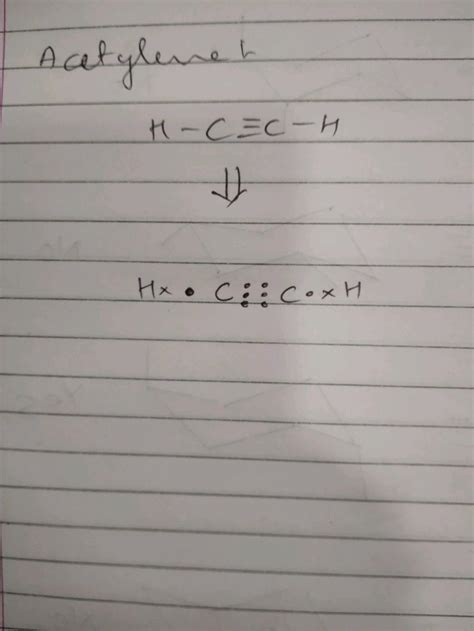 Acetylene
H - C ≡ C - H
⇓
H× • C ⫶⫶ C • × H